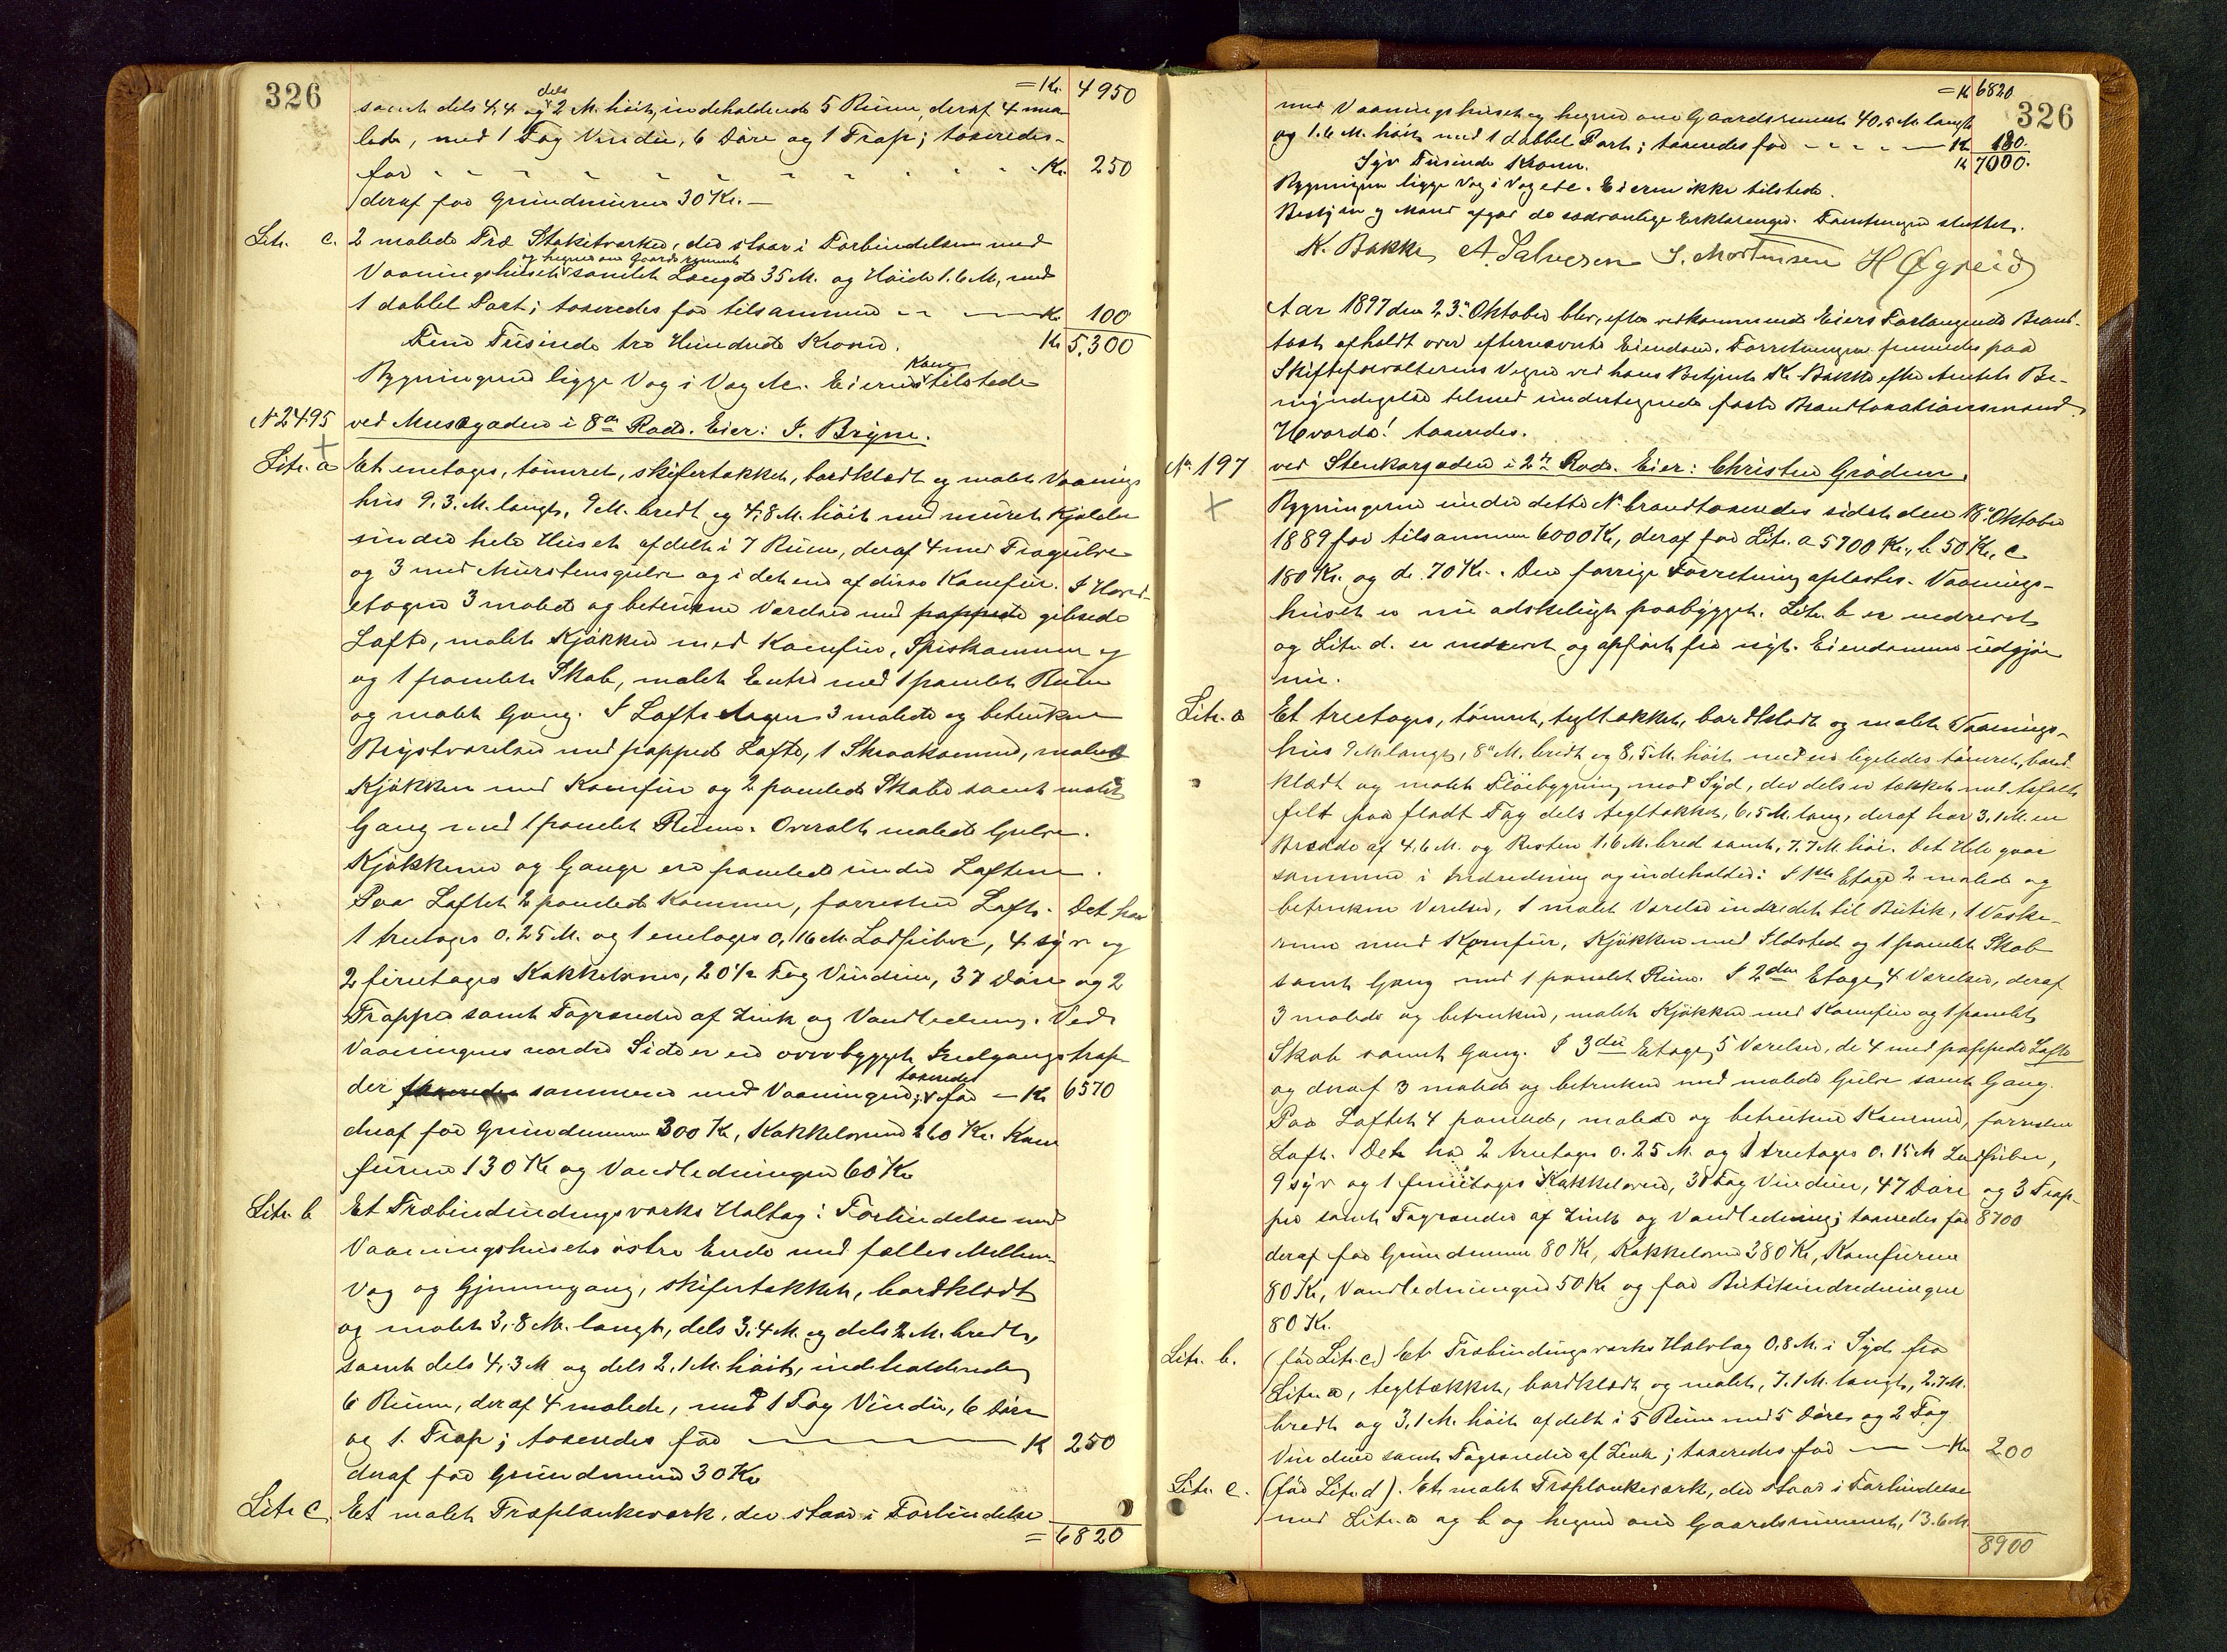 326
= Kr. 4950
samt dels 4,4 og dels 2 M. høit, indeholdende 5 Rum, deraf 4 ma-
lede, med 1 Fag Vindu, 6 Døre og 1 Trap; taxeredes
for - - - - - - - - - - Kr. 250
deraf for Grundmuren 30 Kr. –
Litr. c. 2 malede Træ Stakitværker, der staar i Forbindelse med
og hegner om Gaardsrummet
Vaaningshuset samlet Længde 35 M. og Høide 1.6 M, med
1 dobbel Port; taxeredes for tilsammen - - Kr. 100
Fem Tusinde tre Hundrede Kroner. Kr 5,300
Bygningerne ligge Væg i Væg etc. Eierens Kone tilstede
No 2495 ved Musegaden i 8de Rode. Eier: I. Bryne.
Litr. a Et enetages, tømret, skifertækket, bordklædt og malet Vaanings
hus 9,3 M. langt, 9 M. bredt og 4,8 M. høit med muret Kjælder
under hele Huset afdelt i 7 Rum, deraf 4 med Trægulve
og 3 med Murstensgulve og i det ene af disse Komfur. I Hoved-
etagen 3 malede og betrukne Værelser med pappede gibsede
Lofte, malet Kjøkken med Komfur, Spiskammer og
og 1 panelet Skab, malet Entre med 1 panelet Rum
og malet Gang. I Loftsetagen 3 malede og betrukne
Brystværelser med pappede Lofte, 1 Skraakammer, malet
Kjøkken med Komfur og 2 panelede Skabe samt malet
Gang med 1 panelet Rum. Overalt malede Gulve.
Kjøkkene og Gange ere panelede under Loftene.
Paa Loftet 2 panelede Kammer, forresten Loft. Det har
1 treetages 0.25 M. og 1 enetages 0,16 M. Lodpiber, 4 syv og
2 firetages Kakkelovne, 20 1/2 Fag Vinduer, 37 Døre og 2
Trapper samt Tagrender af Zink og Vandledning. Ved
Vaaningens nordre Side er en overbygget Indgangstrap
taxeredes
der taxeredes sammen med Vaaningen; for – Kr 6570
deraf for Grundmuren 300 Kr, Kakkelovnene 260 Kr. Kom
furene 130 Kr og Vandledningen 60 Kr
Litr. b Et Træbindingsværks Halvtag i Forbindelse med
Vaaningshusets østre Ende med fælles Mellem-
væg og Gjennemgang, skifertækket, bordklædt
og malet 3,8 M. langt, dels 3,4 M. og dels 2 M. bredt,
samt dels 4,3 M og dels 2,1 M. høit, indeholdende
6 Rum, deraf 4 malede, med 1 Fag Vindu, 6 Døre
og 1 Trap; taxeredes for — Kr 250
deraf for Grundmuren 30 Kr
Litr c. Et malet Træplankeværk, der staar i Forbindelse
= 6820
326
= Kr 6820
med Vaaningshuset og hegner om Gaardsrummet 40,5 M. langt
og 1.6 M. høit med 1 dobbel Port; taxeredes for - - - Kr 180.
Syv Tusinde Kroner. Kr 7000.
Bygningerne ligge Væg i Væg etc. Eieren ikke tilstede.
Bestyrer og Mænd afgav de sædvanlige Erklæringer. Forretningen sluttet.
K. Bakke A. Salvesen I. Mortensen H Øgreid
Aar 1897 den 23de Oktober blev, efter vedkommende Eiers Forlangende Brand-
taxt afholdt over efternævnte Eiendom. Forretningen fremmedes paa
Skifteforvalterens Vegne ved hans Betjent K. Bakke efter Amtets Be-
myndigelse tilmed undertegnede faste Brandtaxationsmænd.
Hvorda! taxeredes.
No. 197 ved Stenkargaden i 2den Rode. Eier: Christen Grødem.
Bygningerne under dette No brandtaxeredes sidst den 18de Oktober
1889 for tilsammen 6000 Kr, deraf for Litr. a 5700 Kr., b 50 Kr, c
180 Kr. og d. 70 Kr. Den forrige Forretning oplæstes. Vaanings-
huset er nu adskilligt paabygget. Litr. b er nedrevet
og Litr. d. er nedrevet og opført fra nyt. Eiendommen udgjør
nu.
Litr. a Et treetages, tømret, tegltækket, bordklædt og malet Vaanings-
hus 9 M. langt, 8 M. bredt og 8,5 M. høit med en ligeledes tømret, bord-
klædt og malet Fløibygning mod Syd, der dels er tækket med Asfalt-
filt paa fladt Tag dels tegltækket, 6,5 M. lang, deraf har 3,1 M. en
Bredde af 4.6 M. og Resten 1.6 M. bred samt, 7.7 M. høi. Det Hele gaar
sammen i Indredning og indeholder: I 1ste Etage 2 malede og
betrukne Værelser, 1 malet Værelse indredet til Butik, 1 Vaske-
rum med Komfur, Kjøkken med Ildsted og 1 panelet Skab
samt Gang med 1 panelet Rum. I 2den Etage, 4 Værelser, deraf
3 malede og betrukne, malet Kjøkken med Komfur og 1 panelet
Skab samt Gang. I 3die Etage, 5 Værelser, de 4 med pappede Lofte
og deraf 3 malede og betrukne med malede Gulve samt Gang.
Paa Loftet 4 panelede, malede og betrukne Kammer, forresten
Loft. Det har 2 treetages 0.25 M. og 1 treetages 0.15 M Lodpiber,
9 syv og 1 femetages Kakkelovne, 38 Fag Vinduer, 47 Døre og 3 Trap-
per samt Tagrender af Zink og Vandledning; taxeredes for 8700
deraf for Grundmuren 80 Kr, Kakkelovne 380 Kr, Komfurene
80 Kr, Vandledningen 50 Kr og for Butiksindredningen
80 Kr.
Litr. b. (før Litr. c) Et Træbindingsværks Halvtag 0,8 M. i Syd fra
Litr. a, tegltækket, bordklædt og malet, 7.1 M. langt, 2.7 M.
bredt og 3,1 M. høit afdelt i 5 Rum med 5 Døre og 2 Fag
Vinduer samt Tagrender af Zink; taxeredes for — Kr 200
Litr. c. (før Litr. d). Et malet Træplankeværk, der staar i Forbindelse
med Litr. a og b og hegner om Gaardsrummet, 13.6 M.
8900